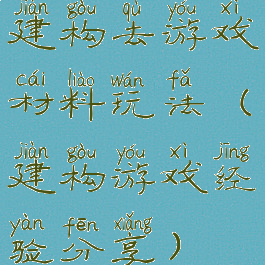 jiàn gòu qù yóu xì
建构去游戏
cái liào wán fǎ
材料玩法（
jiàn gòu yóu xì jīng
建构游戏经
yàn fēn xiǎng
验分享）